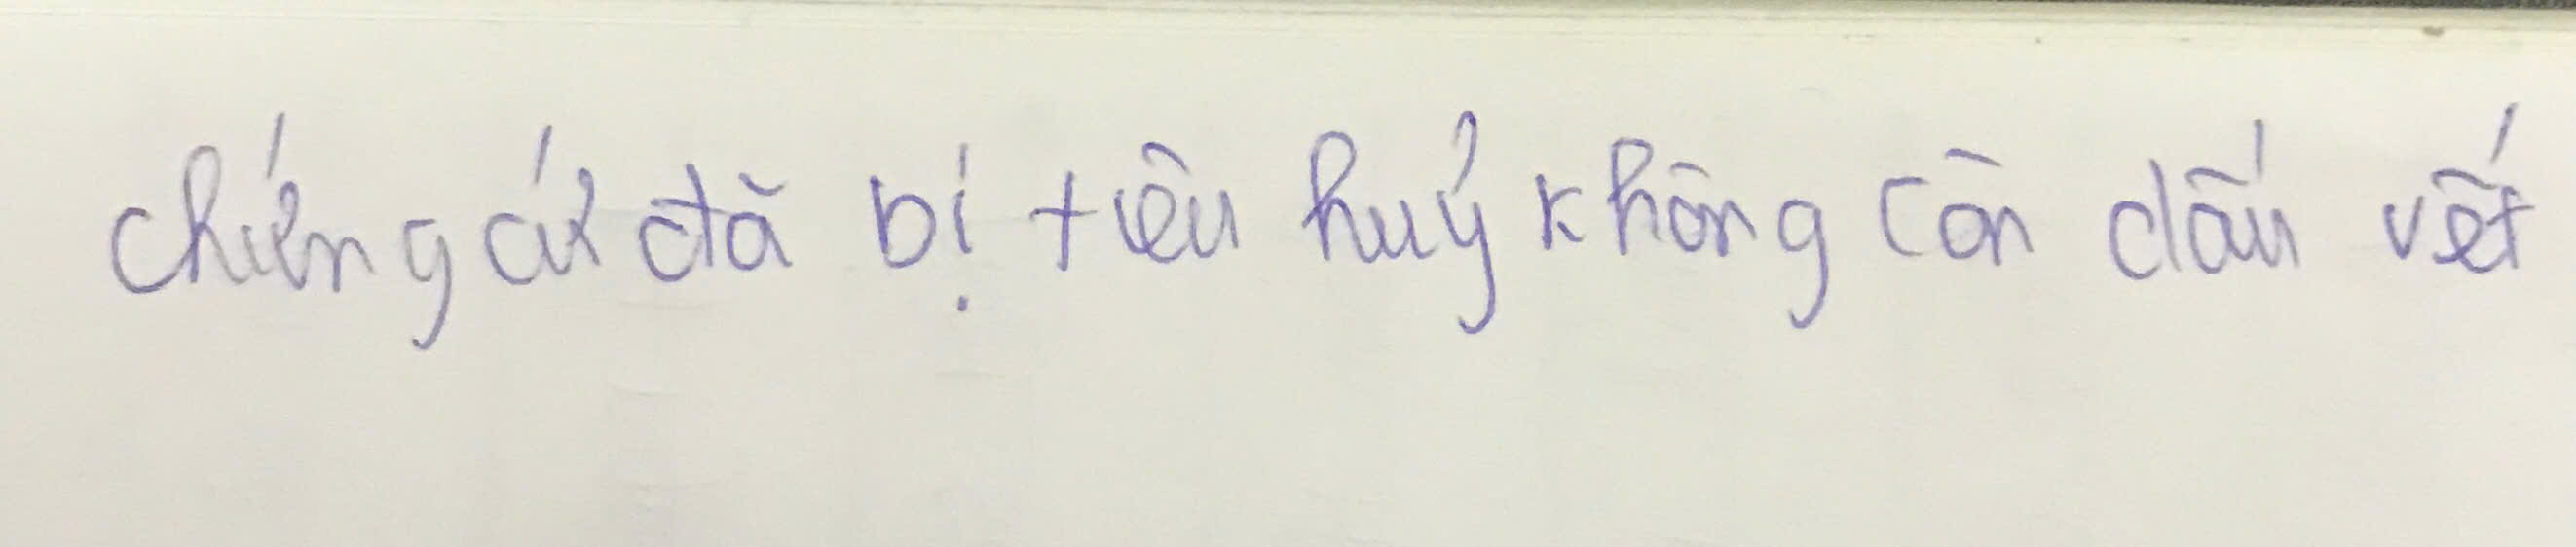 chứng cứ đã bị tiêu huỷ không còn dấu vết